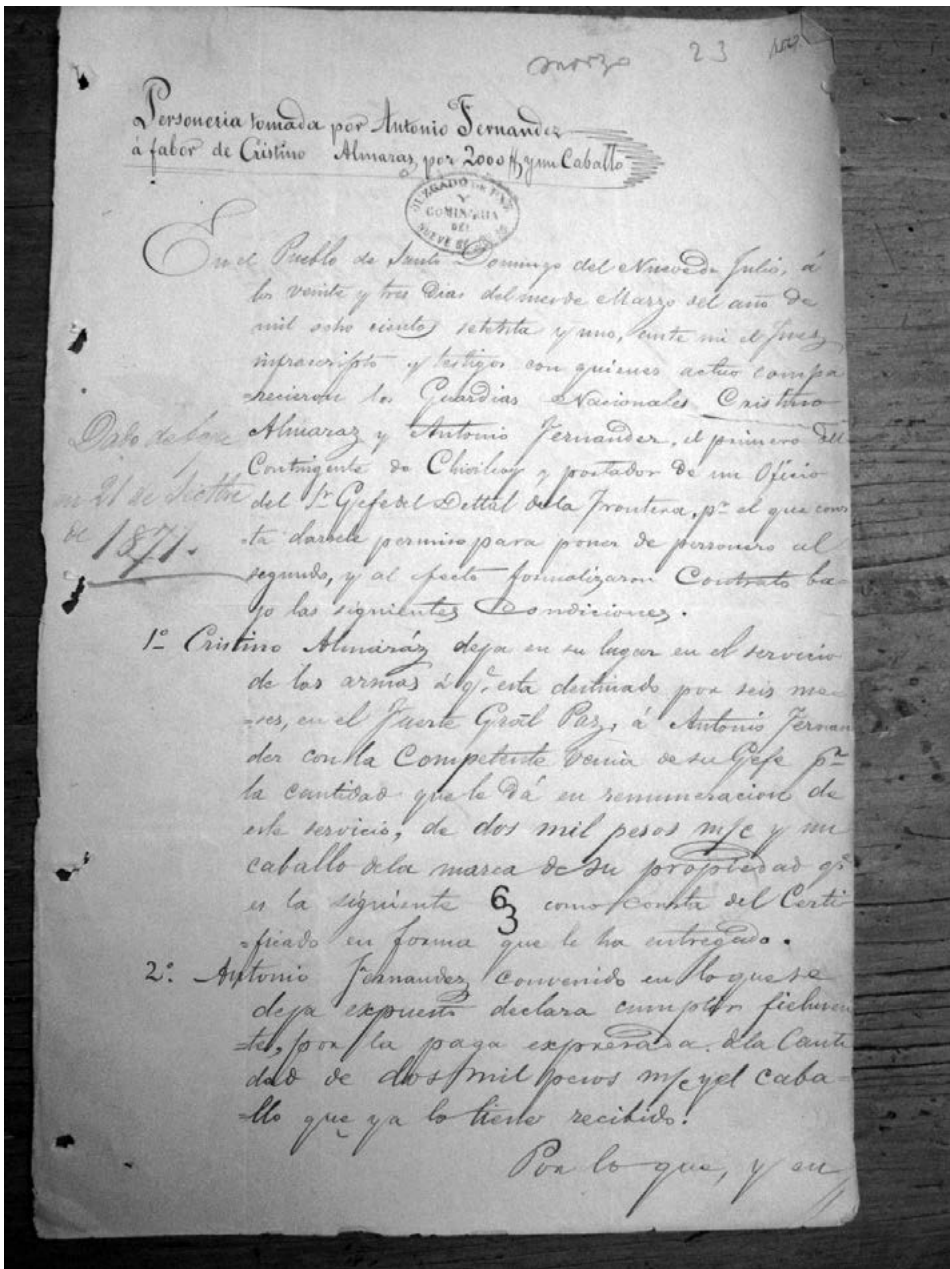 marzo 23
Personeria tomada por Antonio Fernandez
á fabor de Cristino Almaras, por 2000 $, y un Caballo
JUZGADO DE PAZ
Y
COMISARIA
DEL
NUEVE DE JULIO
En el Pueblo de Santo Domingo del Nueve de Julio, á
los veinte y tres dias del mes de Marzo del año de
mil ocho cientos setenta y uno, ante mi el Juez
infrascripto y testigos con quienes actuo compa
=recieron los Guardias Nacionales Cristino
Almaraz y Antonio Fernandez, el primero del
Contingente de Chivilcoy y portador de un Oficio
del Sr Gefe del Dettal de la Frontera, pr el que cons
=ta darsele permiso para poner de personero al
segundo, y al efecto formalizaron Contrato ba
jo las siguientes Condiciones.
Dado de baja
en 21 de Setbre
de 1871.
1º Cristino Almaráz deja en su lugar en el servicio
de las armas á qe esta destinado por seis me
=ses, en el Fuerte Gral Paz, á Antonio Fernan
dez con la Competente venia de su Gefe pr
la cantidad que le dá en remuneracion de
este servicio, de dos mil pesos m/c y un
caballo de la marca de su propiedad qe
es la siguiente como consta del Certi
=ficado en forma que le ha entregado.
2º Antonio Fernandez convenido en lo que se
deja expuesto declara cumplir fielmen
=te, por la paga expresada de la Canti
dad de dos mil pesos m/c y el caba
=llo que ya lo tiene recibido.
Por lo que, y en